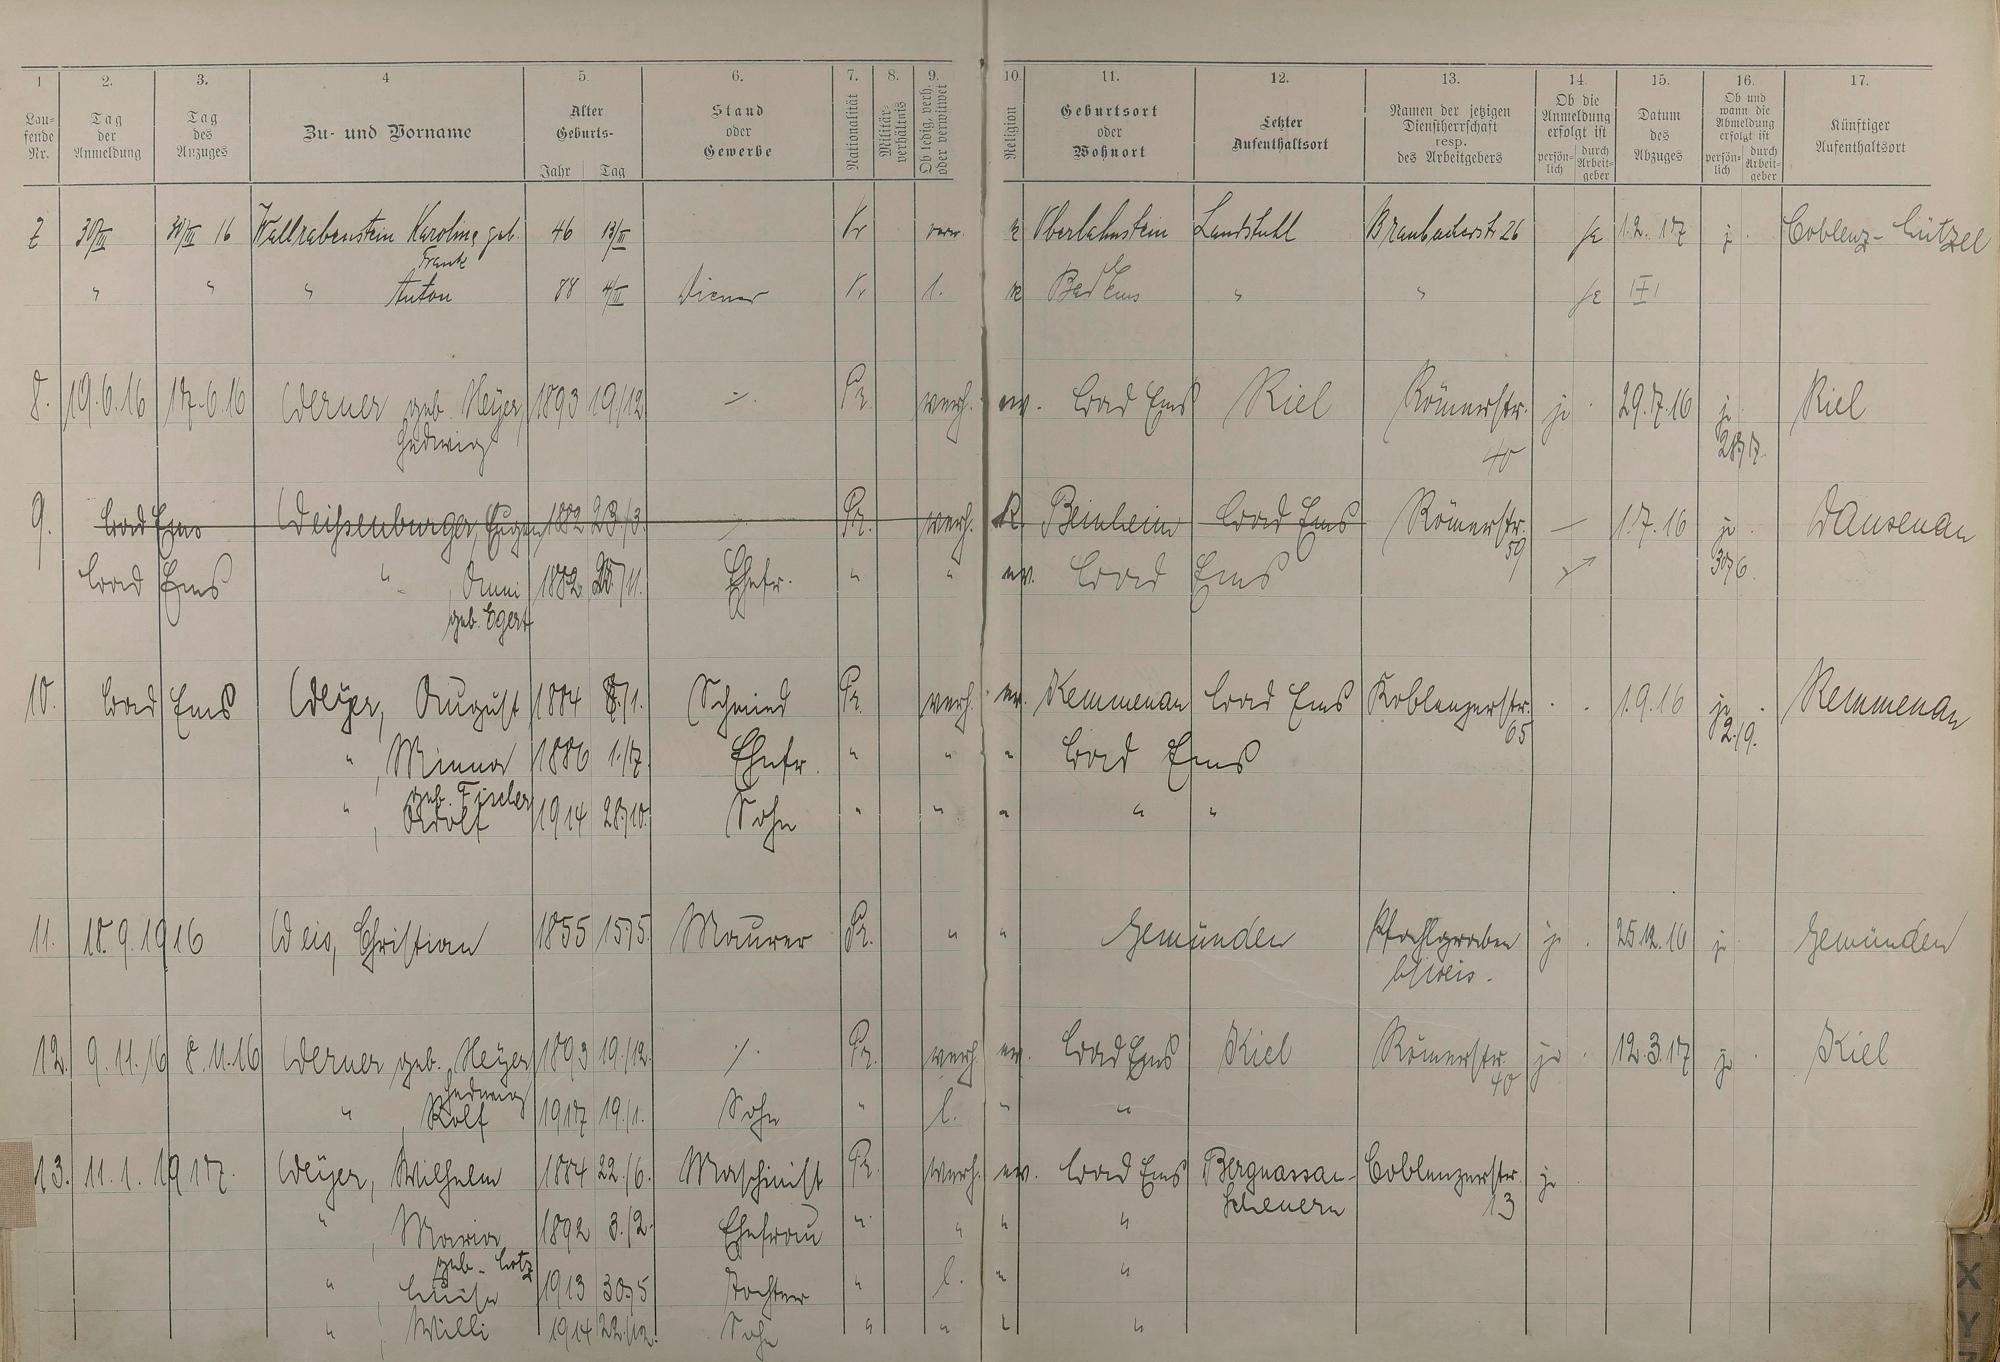 1 2. 3. 4 5. 6. 7. 8. 9. 10. 11. 12. 13. 14 15. 16. 17.
Laufende Nr. Tag der Anmeldung Tag des Anzuges Zu- und Vorname Alter Geburts- Jahr Tag Stand oder Gewerbe Nationalität Militärverhältnis Ob ledig, verh. oder verwitwet Religion Geburtsort oder Wohnort Letzter Aufenthaltsort Namen der jetzigen Dienstherrschaft resp. des Arbeitgebers Ob die Anmeldung erfolgt ist persönlich durch Arbeitgeber Datum des Abzuges Ob und wann die Abmeldung erfolgt ist persönlich durch Arbeitgeber Künftiger Aufenthaltsort
7 30/III 30/III 16 Wallrabenstein Karoline geb. 46 13/III k Oberlahnstein Landstuhl Braubacherstr 26 1.2.17 j. Coblenz-Lützel
Frank
" " " Anton 88 4/III Diener l. k Bad Ems " "
8. 19.6.16 17.6.16 Werner geb. Meyer, 1893 19./12. ./. Pr. verh. ev. Bad Ems Kiel Römerstr. ja 29.7.16 ja Kiel
Hedwig 40 28/7.
9. Bad Ems Weissenburger, Eugen 1882 23./3. ./. Pr. verh. K. Beinheim Bad Ems Römerstr. — 1.7.16 ja. Dausenau
59 30/6.
Bad Ems " Anni 1882 25./11. Ehefr. " " ev. Bad Ems
geb. Egert
10. Bad Ems Weyer, August 1884 8./1. Schmied Pr. verh. ev. Kemmenau Bad Ems Koblenzerstr. 1.9.16 ja Kemmenau
65 2./9.
" , Minna 1886 1./7. Ehefr. " " " Bad Ems
geb. Fischer
" , Adolf 1914 28./10. Sohn " " " " "
11. 18.9.1916 Weis, Christian 1855 15./5. Maurer Pr. " " Gemünden Pfahlgraben ja 25.12.16 ja Gemünden
b/Weis.
12. 9.11.16 8.11.16 Werner geb. Meyer, 1893 19./12. ./. Pr. verh. ev. Bad Ems Kiel Römerstr. ja 12.3.17 ja Kiel
Hedwig 40
" , Rolf 1917 19./1. Sohn " l. " "
13. 11.1.1917. Weyer, Wilhelm 1884 22./6. Maschinist Pr. verh. ev. Bad Ems Bergnassau- Coblenzerstr. ja
Scheuern 13
" , Maria 1892 3./2. Ehefrau " " " "
geb. Lotz
" , Luise 1913 30./5 Tochter " l. " "
" , Willi 1914 22./12. Sohn " " "
X
Y